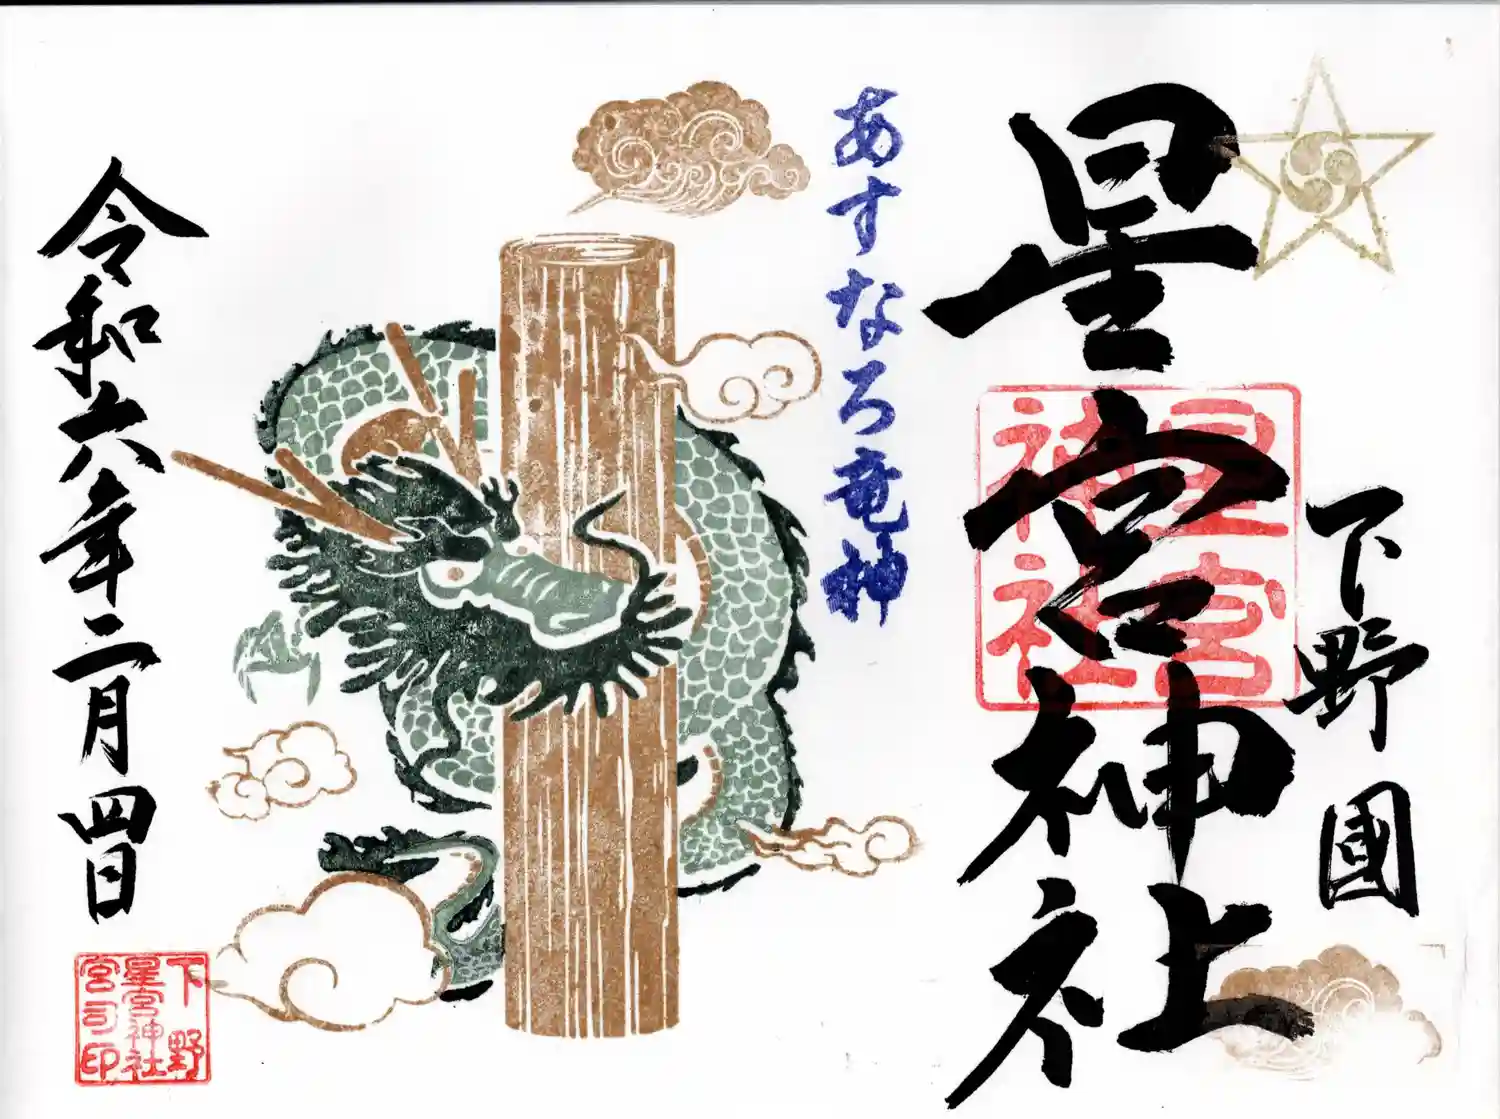 下野國
星宮神社
星宮
神社
あすなろ竜神
令和六年二月四日
下野
星宮神社
宮司印